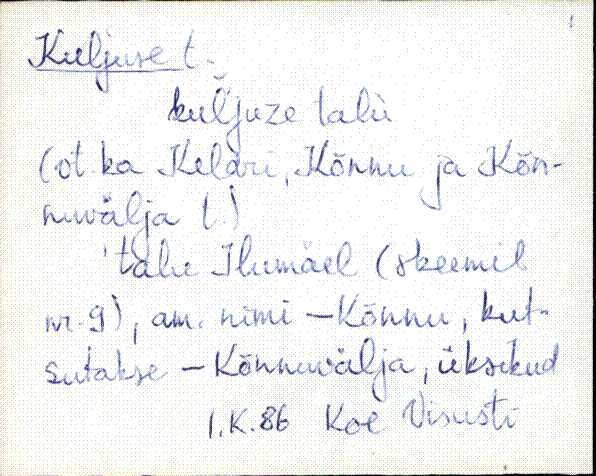 Kuljuse t.
kuljuze talu
(vt ka Keldri, Kõnnu ja Kõn-
nuvälja t.)
talu Ilumäel (skeemil
nr. 9), am. nimi – Kõnnu, kut-
sutakse – Kõnnuvälja, üksikud
I.K. 86 Koe Visusti